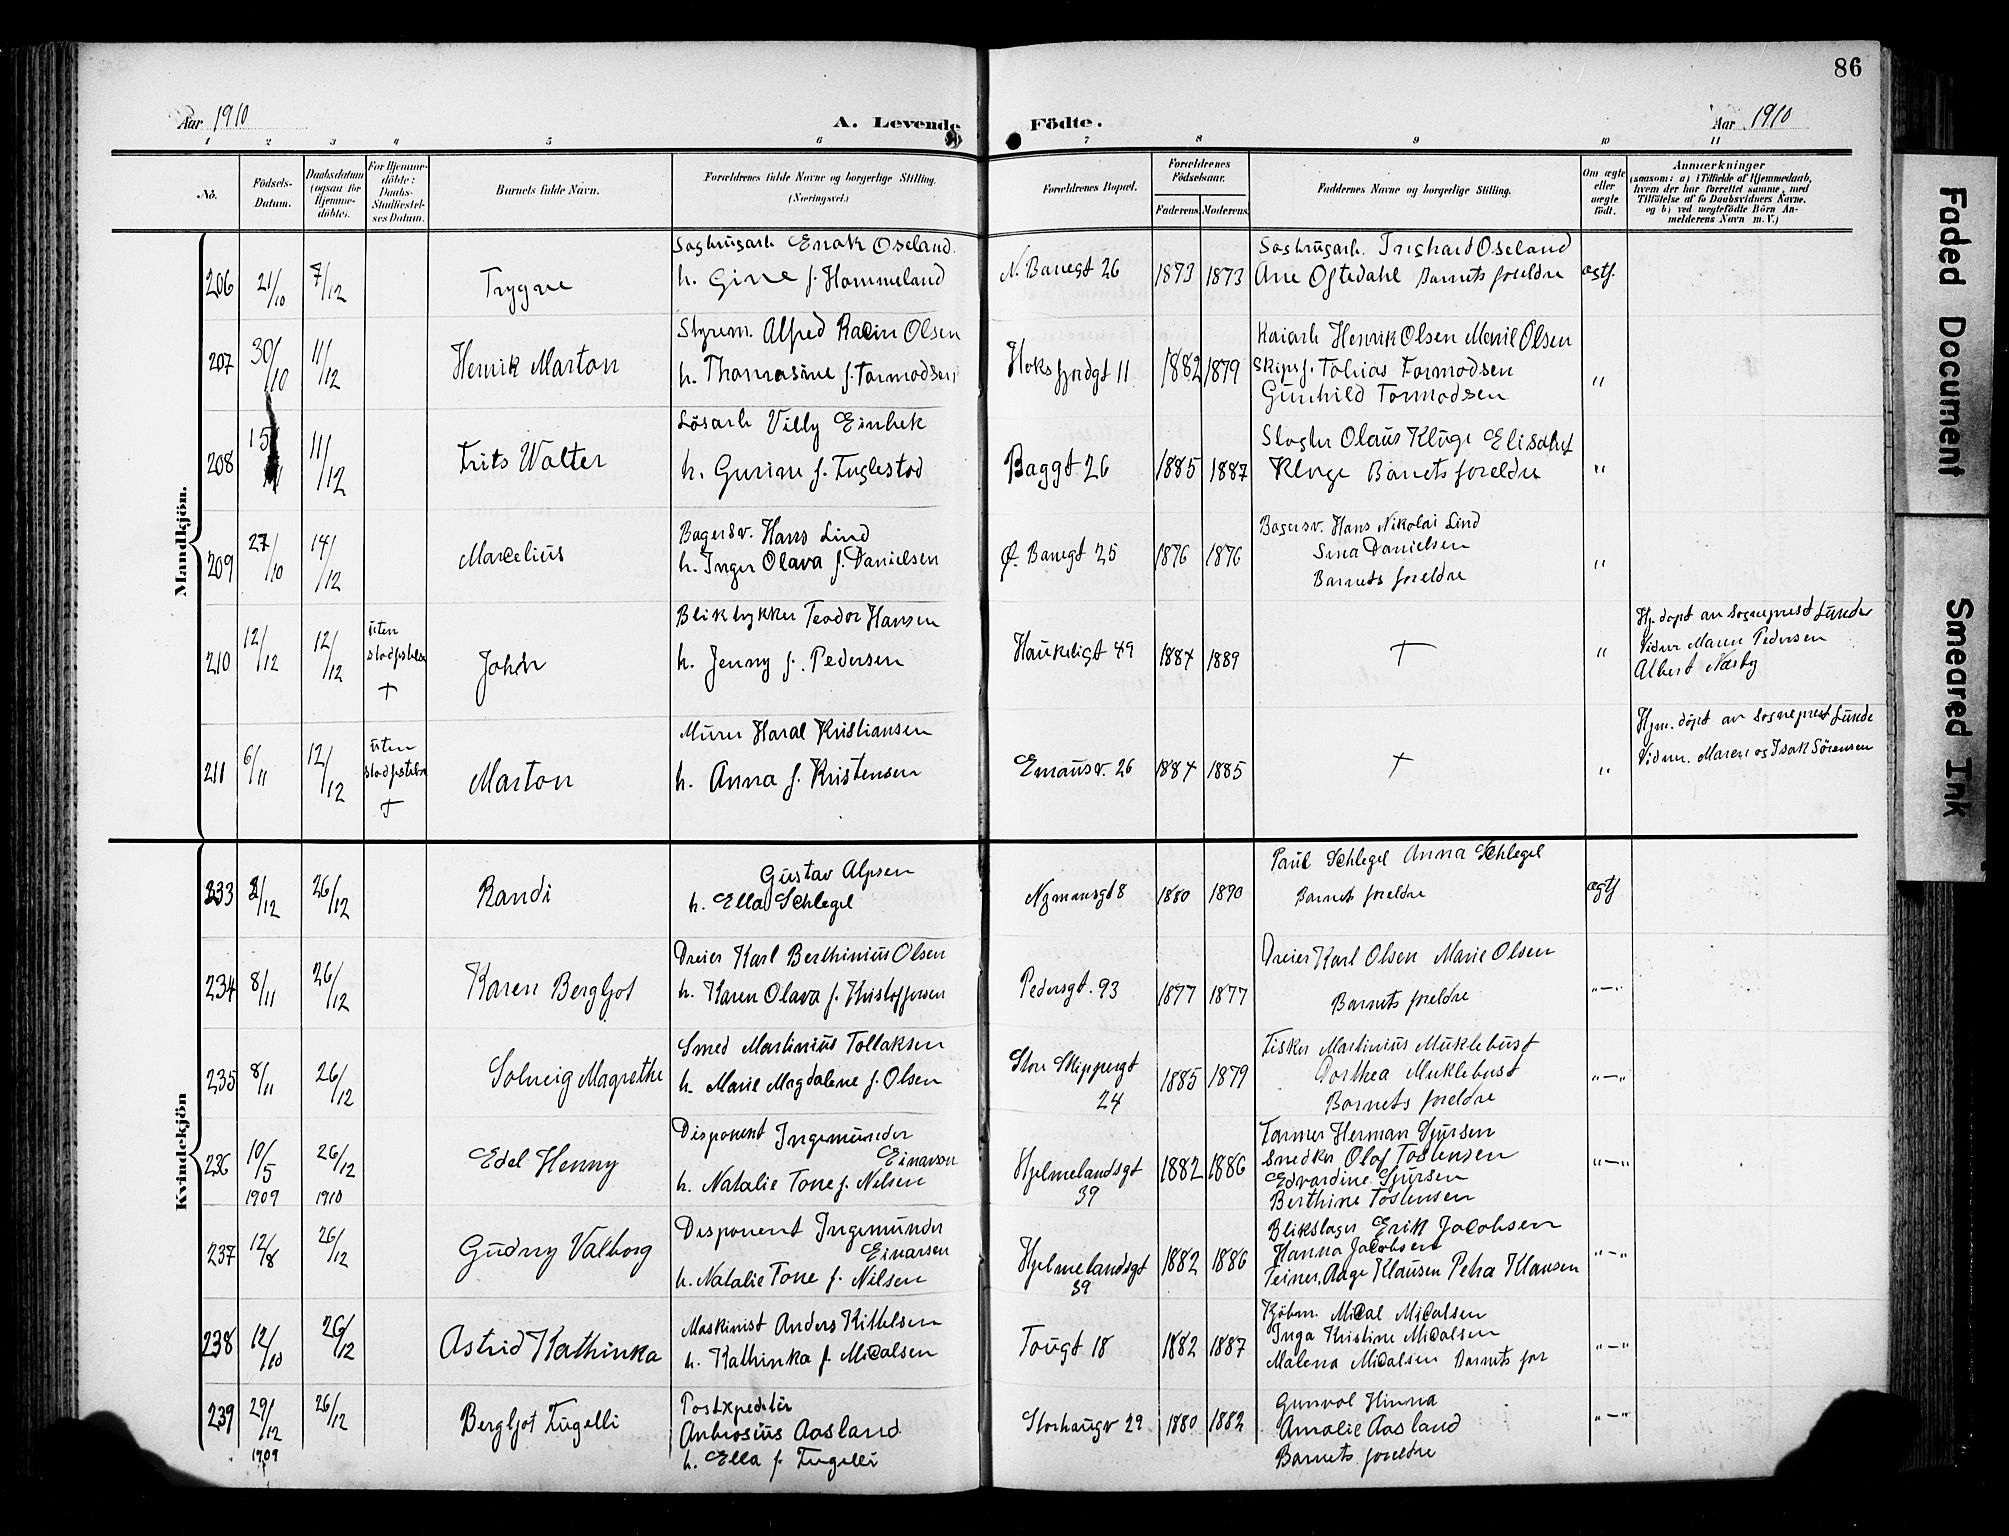 86
Aar 1910
A. Levende Födte.
Aar 1910
1 2 3 4 5 6 7 8 9 10 11
No.
Födsels-Datum.
Daabsdatum (ogsaa for Hjemme-döbte).
For Hjemme-döbte: Daabs-Stadfæstel-ses Datum.
Barnets fulde Navn.
Forældrenes fulde Navne og borgerlige Stilling. (Næringsvei.)
Forældrenes Bopæl.
Forældrenes Födselsaar.
Faderens. Moderens.
Faddernes Navne og borgerlige Stilling.
Om ægte eller uægte födt.
Anmærkninger
(saasom: a) i Tilfælde af Hjemmedaab, hvem der har forrettet samme, med Tilföielse af to Daabsvidners Navne. og b) ved uægtefödte Börn An-melderens Navn m. V.)
Mandkjön.
206 21/10 7/12 Trygve
Sagbrugsarb Enok Oseland.
h. Gine f. Hommeland
N. Banegt 26 1873 1873
Sagbrugarb. Inghard Oseland
Ane Oftedahl Barnets foreldre
ægtf.
207 30/10 11/12 Henrik Marton
Styrem. Alfred Racin Olsen
h. Thomasine f. Tormodsen
Hoksfjordgt 11 1882 1879
Kaiarb Henrik Olsen Meril Olsen
Skipsf. Tobias Tormodsen
Gunhild Tormodsen
"
208 15/11 11/12 Frits Walter
Lösarb Villy Einbek
h. Gurine f. Fuglestad
Baggt 26 1885 1887
Slagter Olaus Kluge Elisabet
Kluge Barnets foreldre
"
209 27/10 14/12 Marcelius
Bagersv. Hans Lind
h. Inger Olava f. Danielsen
Ø. Banegt 25 1876 1876
Bagersv. Hans Nikolai Lind
Sina Danielsen
Barnets foreldre
"
210 12/12 12/12
uten stadfestelse
†
John
Blikbykker Teodor Hansen
h. Jenny f. Pedersen
Haukeligt 49 1884 1889
†
"
Hj. döpt av Sogneprest Lunde
Vidner Maren Pedersen
Albert Næsby
211 6/11 12/12
uten stadfestelse
†
Marton
Murer Haral Kristiansen
h. Anna f. Kristensen
Emausv. 26 1884 1885
†
"
Hjm. döpt av Sogneprest Lunde
Vidner. Maren og Isak Sörensen
Kvindekjön
233 2/12 26/12 Randi
Gustav Alpsen
h. Ella Schlegel
Nymansgt 8 1880 1890
Paul Schlegel Anna Schlegel
Barnets foreldre
ægtf
234 8/11 26/12 Karen Bergljot
Dreier Karl Berthinius Olsen
h. Karen Olava f. Kristoffersen
Pedersgt. 93 1877 1877
Dreier Karl Olsen Marie Olsen
Barnets foreldre
"—"
235 8/11 26/12 Solveig Magrethe
Smed Martinius Tollaksen
h. Marie Magdalene f. Olsen
Store Skippergt
24
1885 1879
Fisker Martinius Muklebust
Dorthea Muklebust
Barnets foreldre
"—"
236 10/5 1909 26/12 1910 Edel Henny
Disponent Ingemunder
Einarson
h. Natalie Tone f. Nilsen
Hjelmelandsgt
39
1882 1886
Farmer Herman Sjursen
Snedker Olaf Tostensen
Edvardine Sjursen
Berthine Tostensen
"—"
237 12/8 26/12 Gudny Valborg
Disponent Ingemunder
Einarsen
h. Natalie Tone f. Nilsen
Hjelmelandsgt
39
1882 1886
Blikslager Erik Jacobsen
Hanna Jacobsen
Feiner. Aage Klausen Petra Klausen
"—"
238 12/10 26/12 Astrid Kathinka
Maskinist Anders Kittelsen
h. Kathinka f. Micalsen
Tougt 18 1882 1887
Kjöbm. Mical Micalsen
Inga Kristine Micalsen
Malena Micalsen Barnets for
"—"
239 29/12 1909 26/12 Bergljot Fugelli
Postexpeditör
Ambrosius Aasland
h. Ella f. Fugelli
Storhaugv 29 1880 1882
Gunvol Hinna
Amalie Aasland
Barnets foreldre
"—"
Faded Document
Smeared Ink